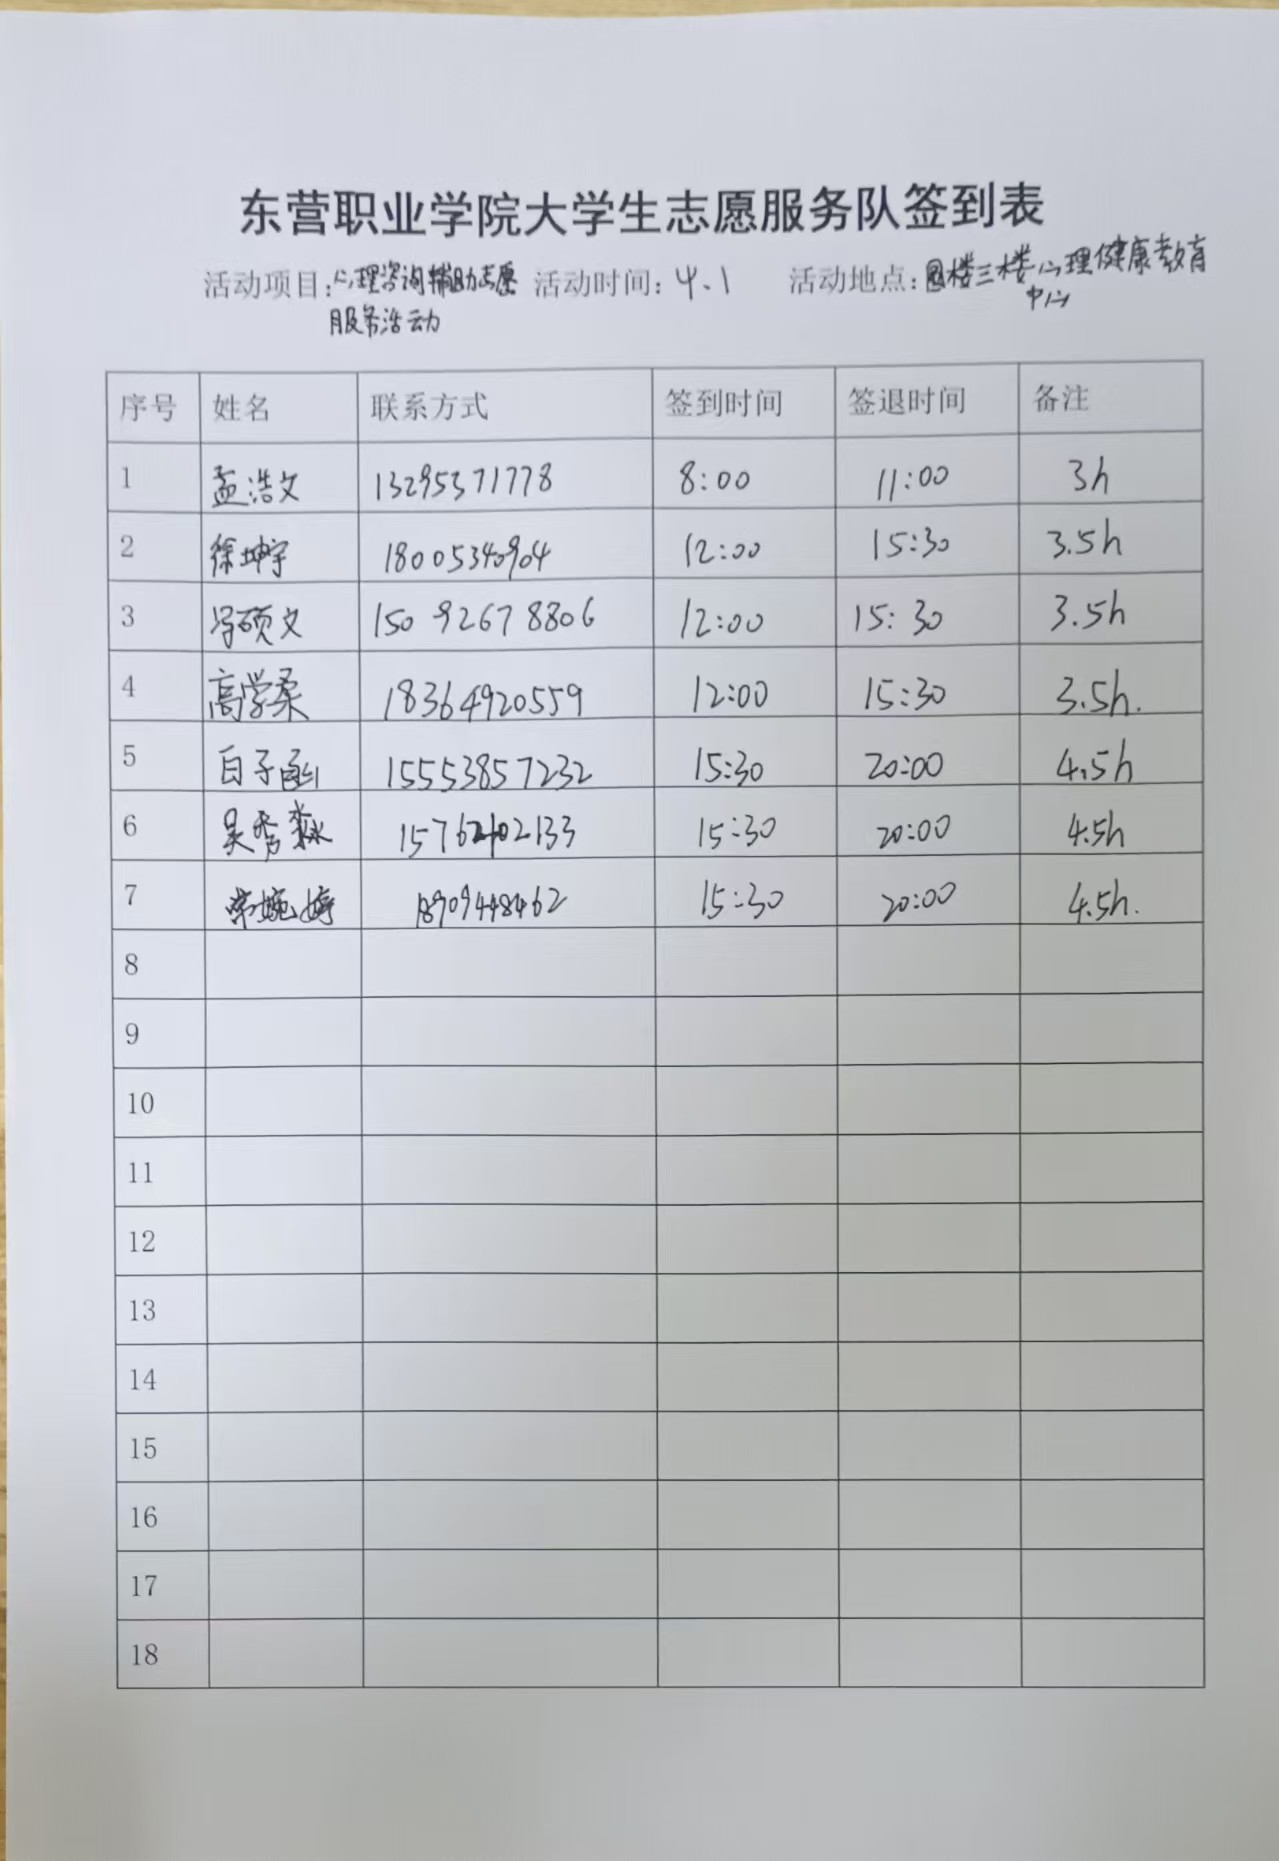 东营职业学院大学生志愿服务队签到表
活动项目：心理咨询辅助志愿服务活动 活动时间：4.1 活动地点：图楼三楼心理健康教育中心
序号 姓名 联系方式 签到时间 签退时间 备注
1 孟浩文 13295371778 8:00 11:00 3h
2 徐坤宇 18005340904 12:00 15:30 3.5h
3 冯硕文 15092678806 12:00 15:30 3.5h
4 高学柔 18364920559 12:00 15:30 3.5h.
5 白子函 15553857232 15:30 20:00 4.5h
6 吴秀淼 15:30 20:00 4.5h
7 常婉婷 15:30 20:00 4.5h.
8
9
10
11
12
13
14
15
16
17
18